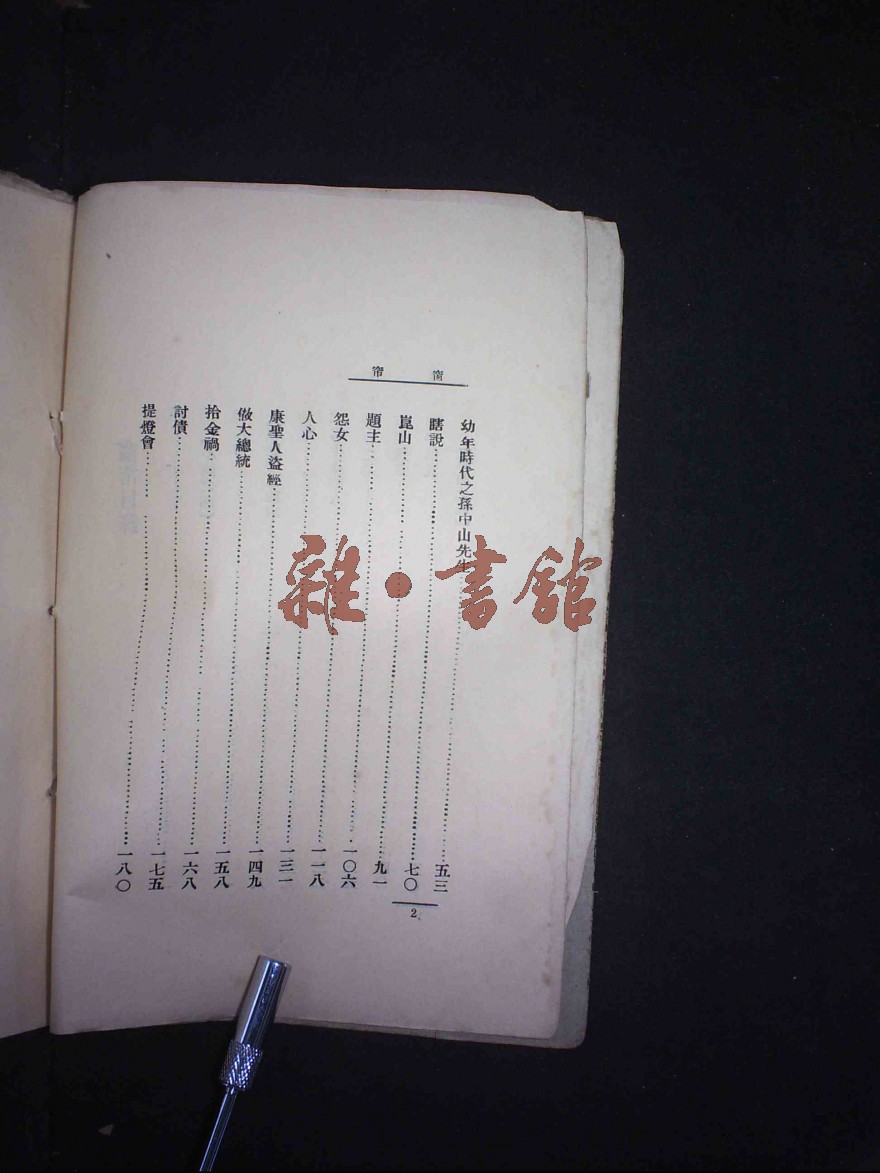 窗帘
幼年時代之孫中山先生……五三
瞎說……七〇
崑山……九一
題主……一〇六
怨女……一一八
人心……一三一
康聖人盜經……一四九
做大總統……一五八
拾金禍……一六八
討債……一七五
提燈會……一八〇
2
雜·書館